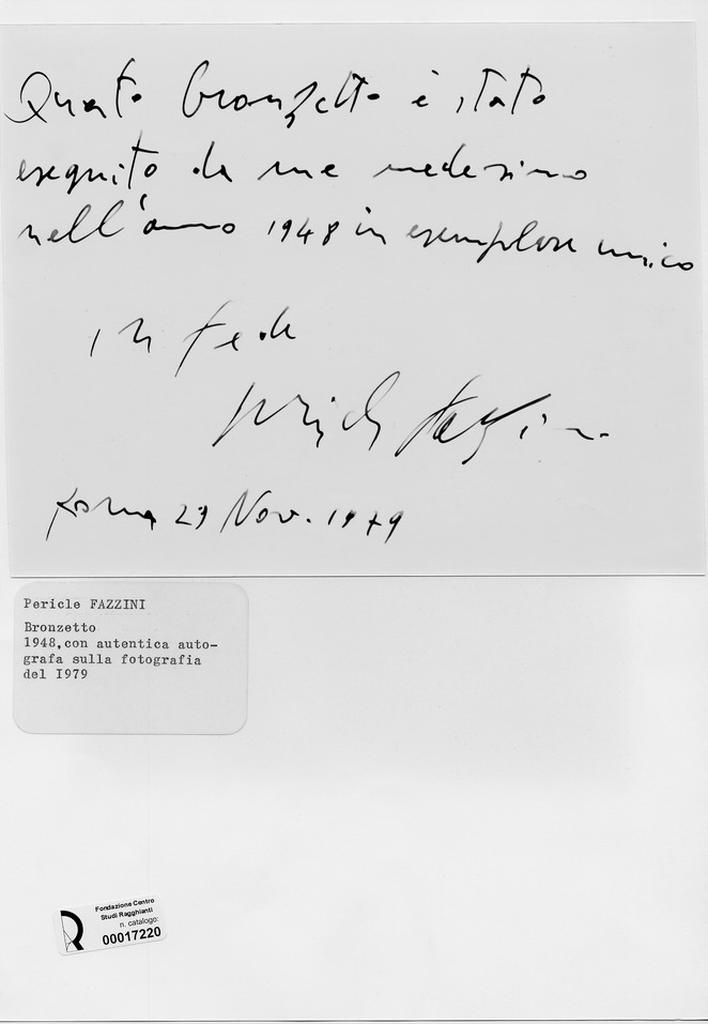 Questo bronzetto è stato
eseguito da me medesimo
nell'anno 1948 in esemplare unico
in fede
Pericle Fazzini
Roma 29 Nov. 1979
Pericle FAZZINI
Bronzetto
1948,con autentica auto-
grafa sulla fotografia
del I979
Fondazione Centro
Studi Ragghianti
n. catalogo:
00017220